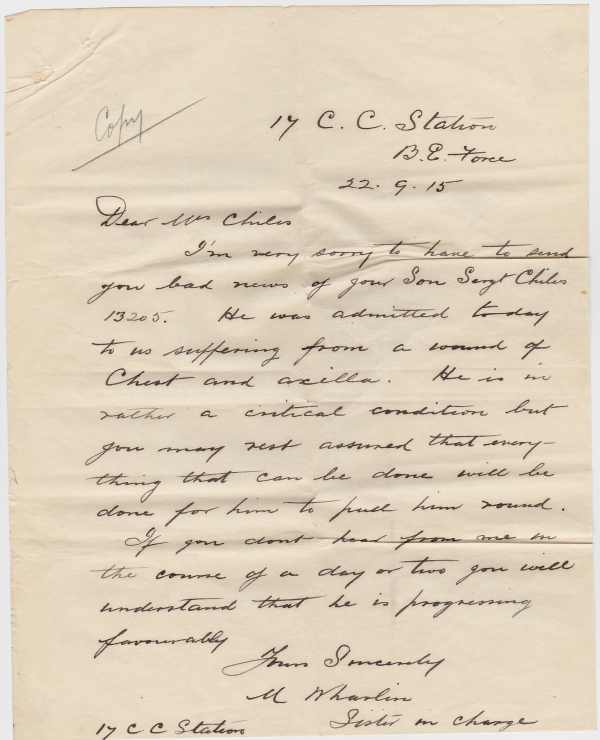 Copy
17 C. C. Station
B. E. Force
22. 9. 15
Dear Mrs Chiles
I'm very sorry to have to send
you bad news of your Son Sergt Chiles
13205. He was admitted to day
to us suffering from a wound of
Chest and axilla. He is in
rather a critical condition but
you may rest assured that every-
thing that can be done will be
done for him to pull him round.
If you dont hear from me in
the course of a day or two you will
understand that he is progressing
favourably
Yours Sincerely
M
Sister in charge
17 C C Station